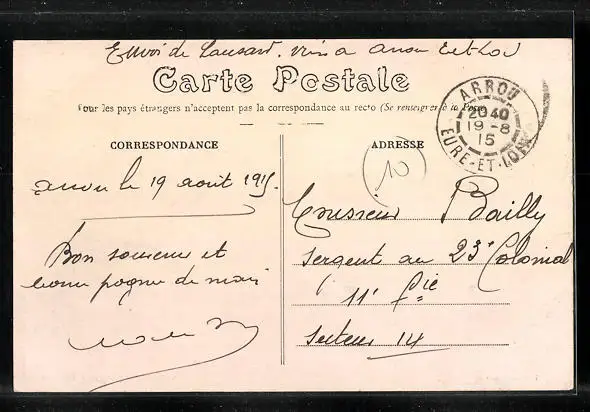 Envoi de
a Arrou
Carte Postale
Tour les pays étrangers n'acceptent pas la correspondance au recto (Se renseigner à la Poste)
ARROU
20 40
19-8
15
EURE-ET-LOIR
CORRESPONDANCE
ADRESSE
10
Arrou le 19 août 1915
Bon souvenir et
bonne poigne de main
Monsieur Bailly
Sergent au 23e Colonial
11e Cie
Secteur 14